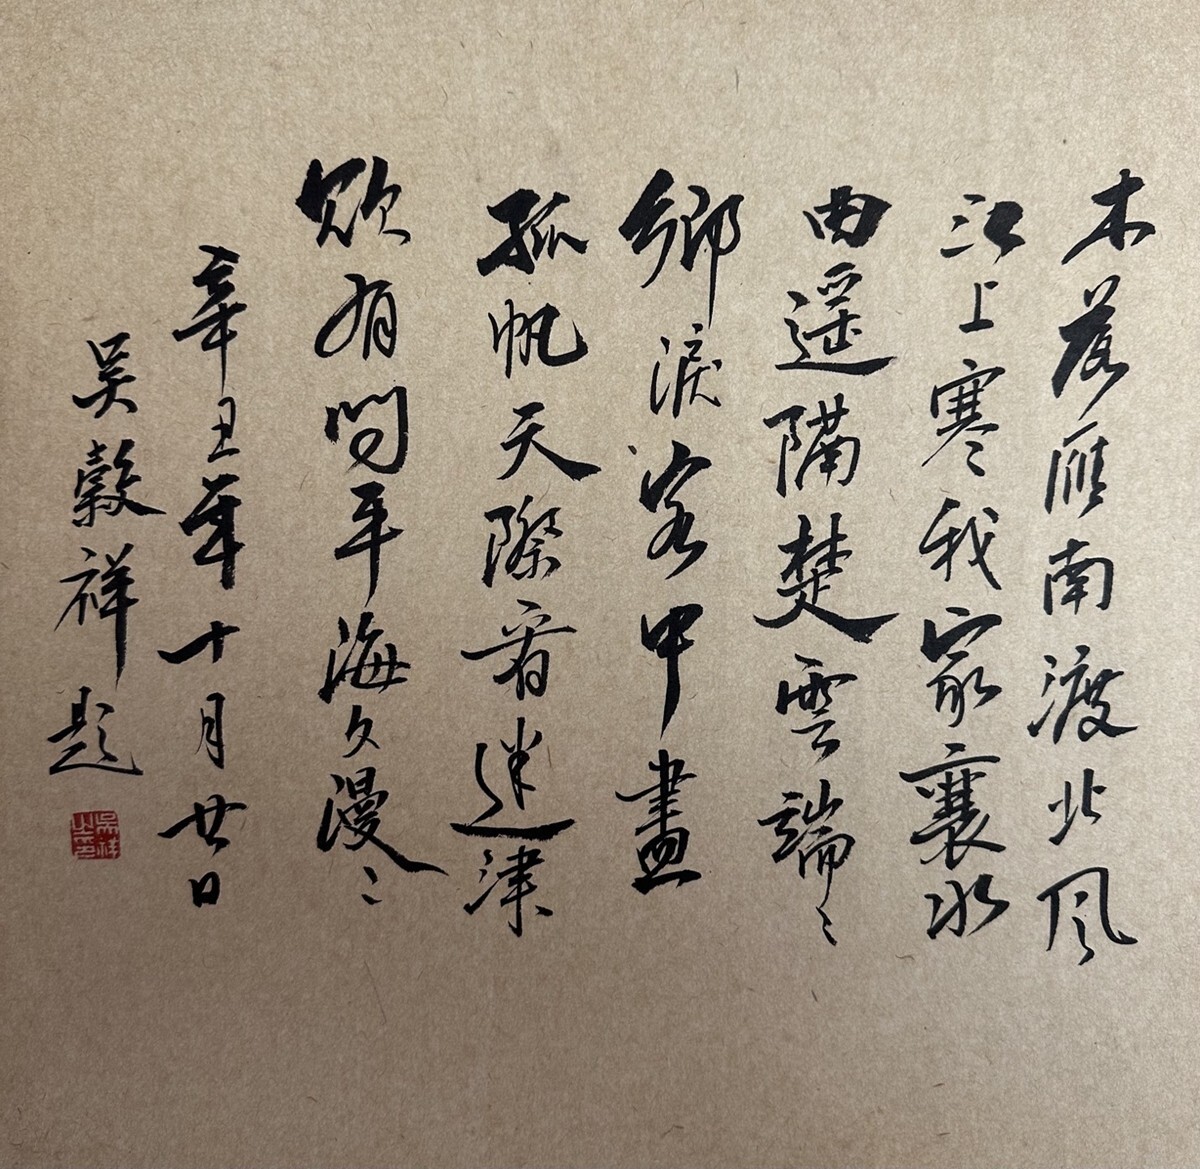 木落雁南渡北風
江上寒我家襄水
曲遥隔楚雲端〻
鄉淚客中盡
孤帆天際看迷津
欲有問平海夕漫〻
辛丑年十月廿日
吳穀祥題